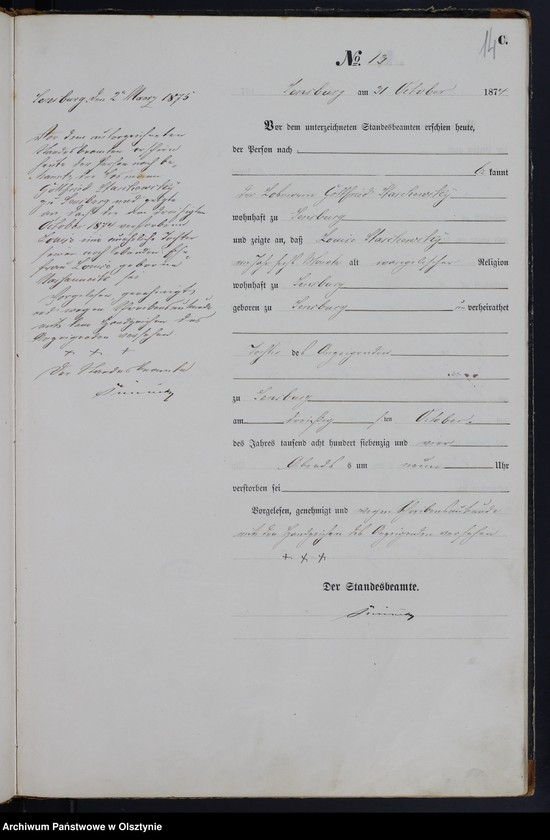 14 C.
No. 13
Sensburg am 31 October 1874
Vor dem unterzeichneten Standesbeamten erschien heute,
der Person nach
be kannt
Gottfried Stachowsky
wohnhaft zu Sensburg
und zeigte an, daß Louise Stachowsky
alt evangelischer Religion
wohnhaft zu Sensburg
geboren zu Sensburg un verheirathet
Tochter des Anzeigenden
zu Sensburg
am dreißig ten October
des Jahres tausend acht hundert siebenzig und vier
Abends um neun Uhr
verstorben sei
Vorgelesen, genehmigt und wegen Schreibensunkunde
mit den Handzeichen des Anzeigenden versehen
+ + +
Der Standesbeamte.
Sensburg, den 2 Maerz 1875
Vor dem unterzeichneten
Standesbeamten erschien
heute der Person nach be
kannt
Gottfried Stachowsky
zu Sensburg und zeigte
an daß die am dreißigsten
October 1874 verstorbene
Louise eine eheliche Tochter
seiner
Frau Louise geborene
sei
Vorgelesen genehmigt
und wegen Schreibensunkunde
mit dem Handzeichen des
Anzeigenden versehen
+ + +
Der Standesbeamte
Archiwum Państwowe w Olsztynie